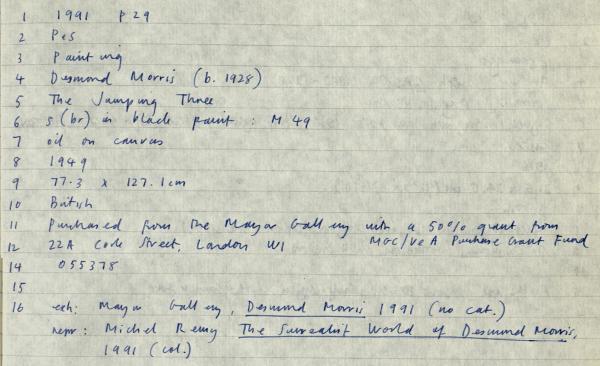 1 1991 P29
2 Pes
3 Painting
4 Desmond Morris (b. 1928)
5 The Jumping Three
6 s(br) in black paint : M 49
7 oil on canvas
8 1949
9 77.3 x 127.1 cm
10 British
11 Purchased from the Mayor Gallery with a 50% grant from
12 22A Cork Street, London W1 MGC/V&A Purchase Grant Fund
14 055378
15
16 exh: Mayor Gallery, Desmond Morris 1991 (no cat.)
repr.: Michel Remy The Surrealist World of Desmond Morris,
1991 (col.)